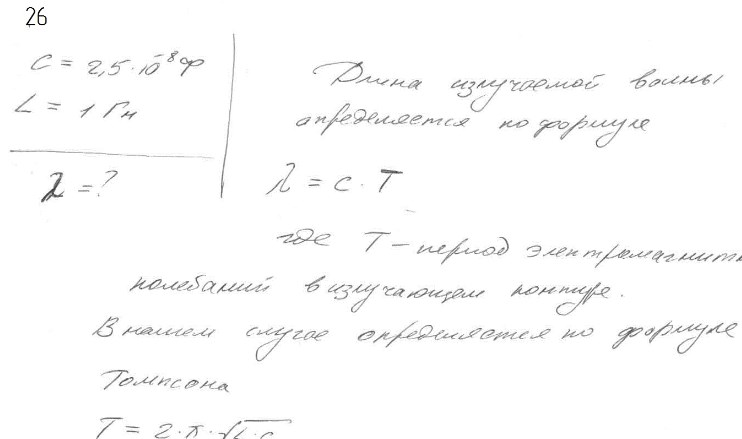 26
C = 2,5·10⁻⁸ Ф
L = 1 Гн
λ = ?
Длина излучаемой волны
определяется по формуле
λ = c · T
где T – период электромагнитн
колебаний в излучающем контуре.
В нашем случае определяется по формуле
Томпсона
T = 2·π·√L·C